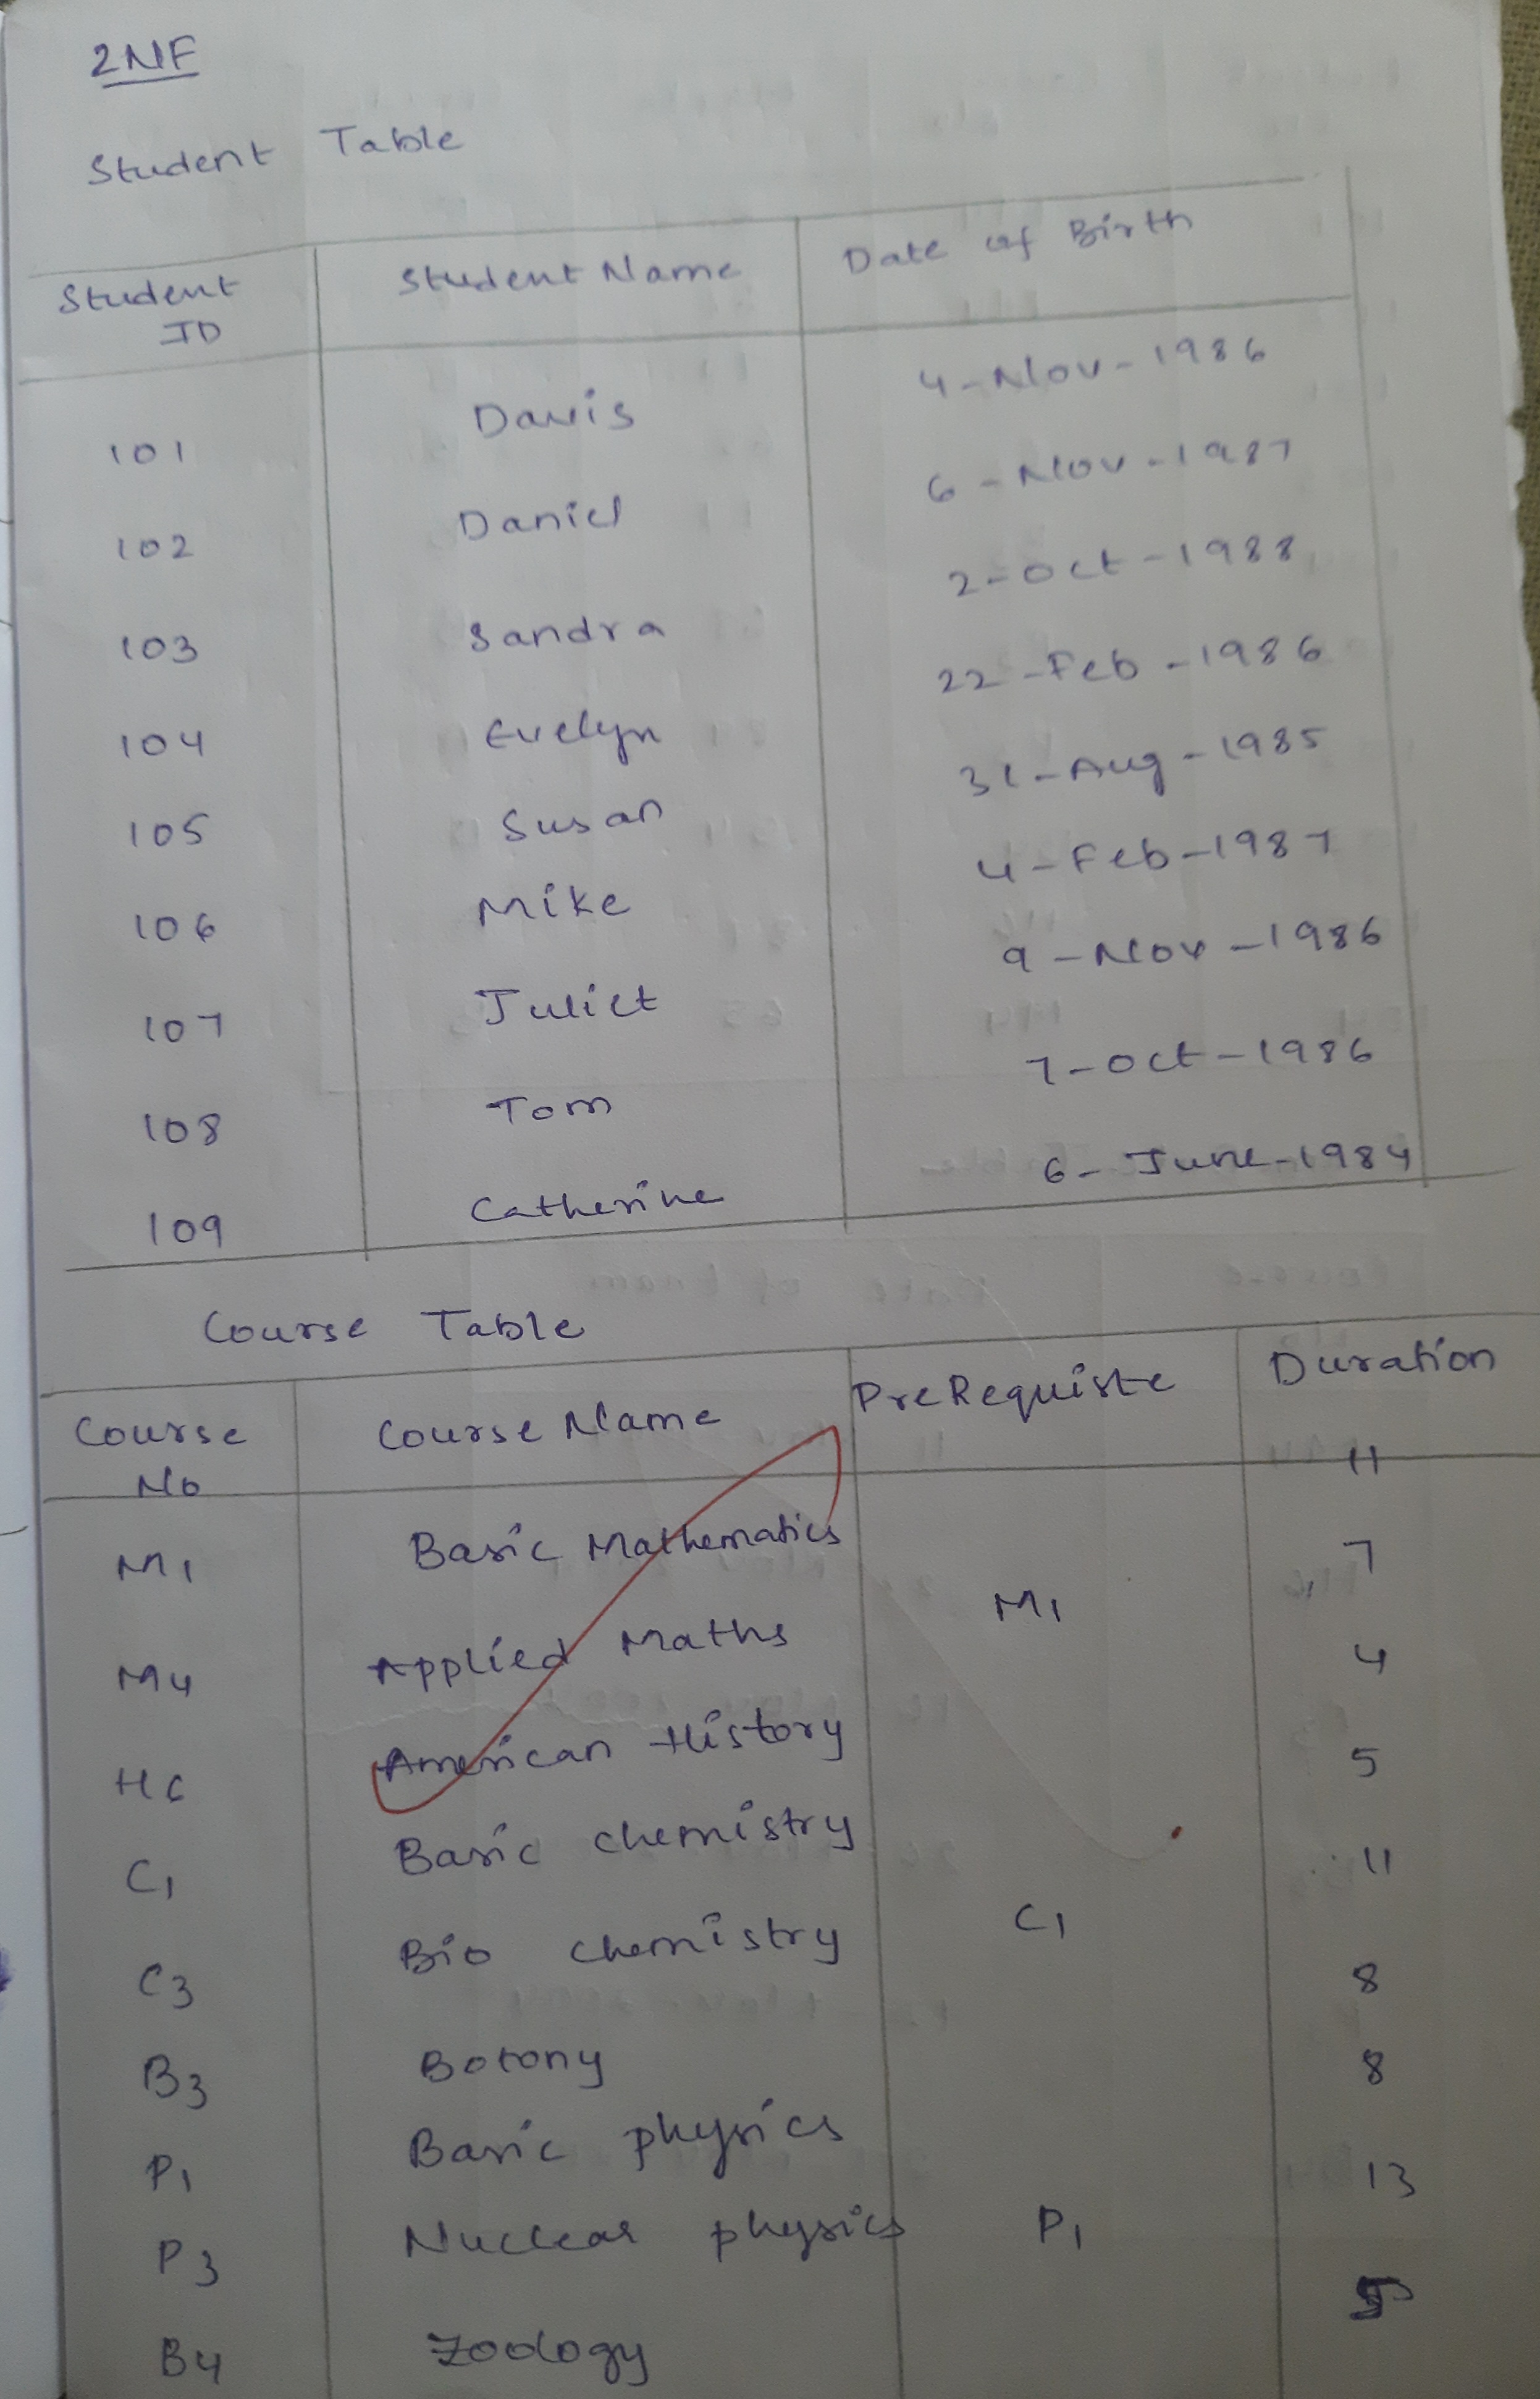 2NF
Student Table
Student ID Student Name Date of Birth
101 Davis 4-Nov-1986
102 Daniel 6-Nov-1987
103 Sandra 2-Oct-1988
104 Evelyn 22-Feb-1986
105 Susan 31-Aug-1985
106 Mike 4-Feb-1987
107 Juliet 9-Nov-1986
108 Tom 7-Oct-1986
109 Catherine 6-June-1984
Course Table
Course No Course Name PreRequiste Duration
M1 Basic Mathematics 11
M4 Applied Maths M1 7
H6 American History 4
C1 Basic chemistry 5
C3 Bio chemistry C1 11
B3 Botony 8
P1 Basic physics 8
P3 Nuclear physics P1 13
B4 Zoology